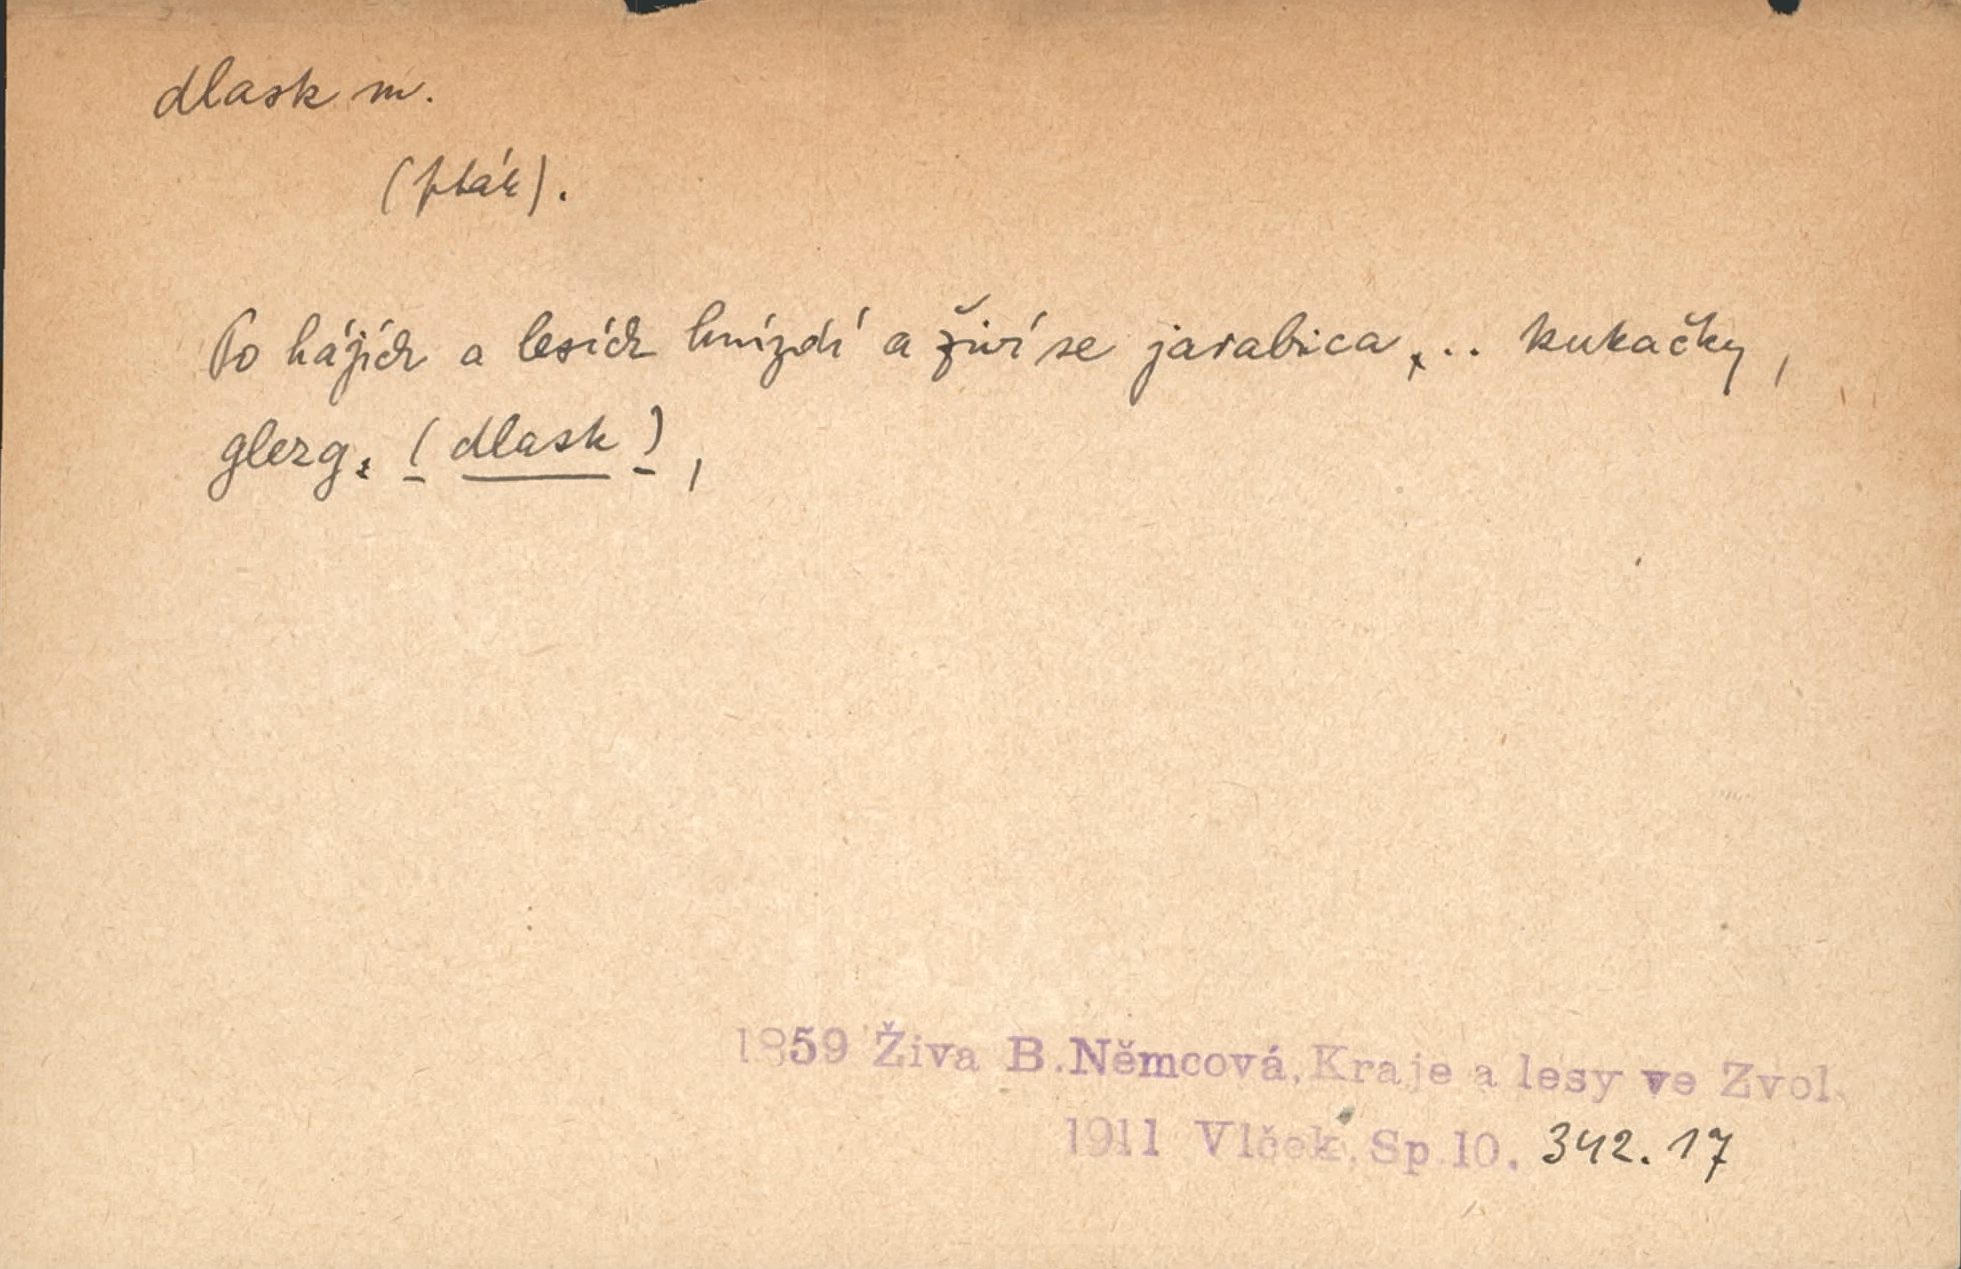 dlask m.
(pták).
Po hájích a lesích hnízdí a živí se jarabica, .. kukačky,
glezg. (dlask),
1859 Živa B. Němcová, Kraje a lesy ve Zvol.
1911 Vlček, Sp 10. 342.17